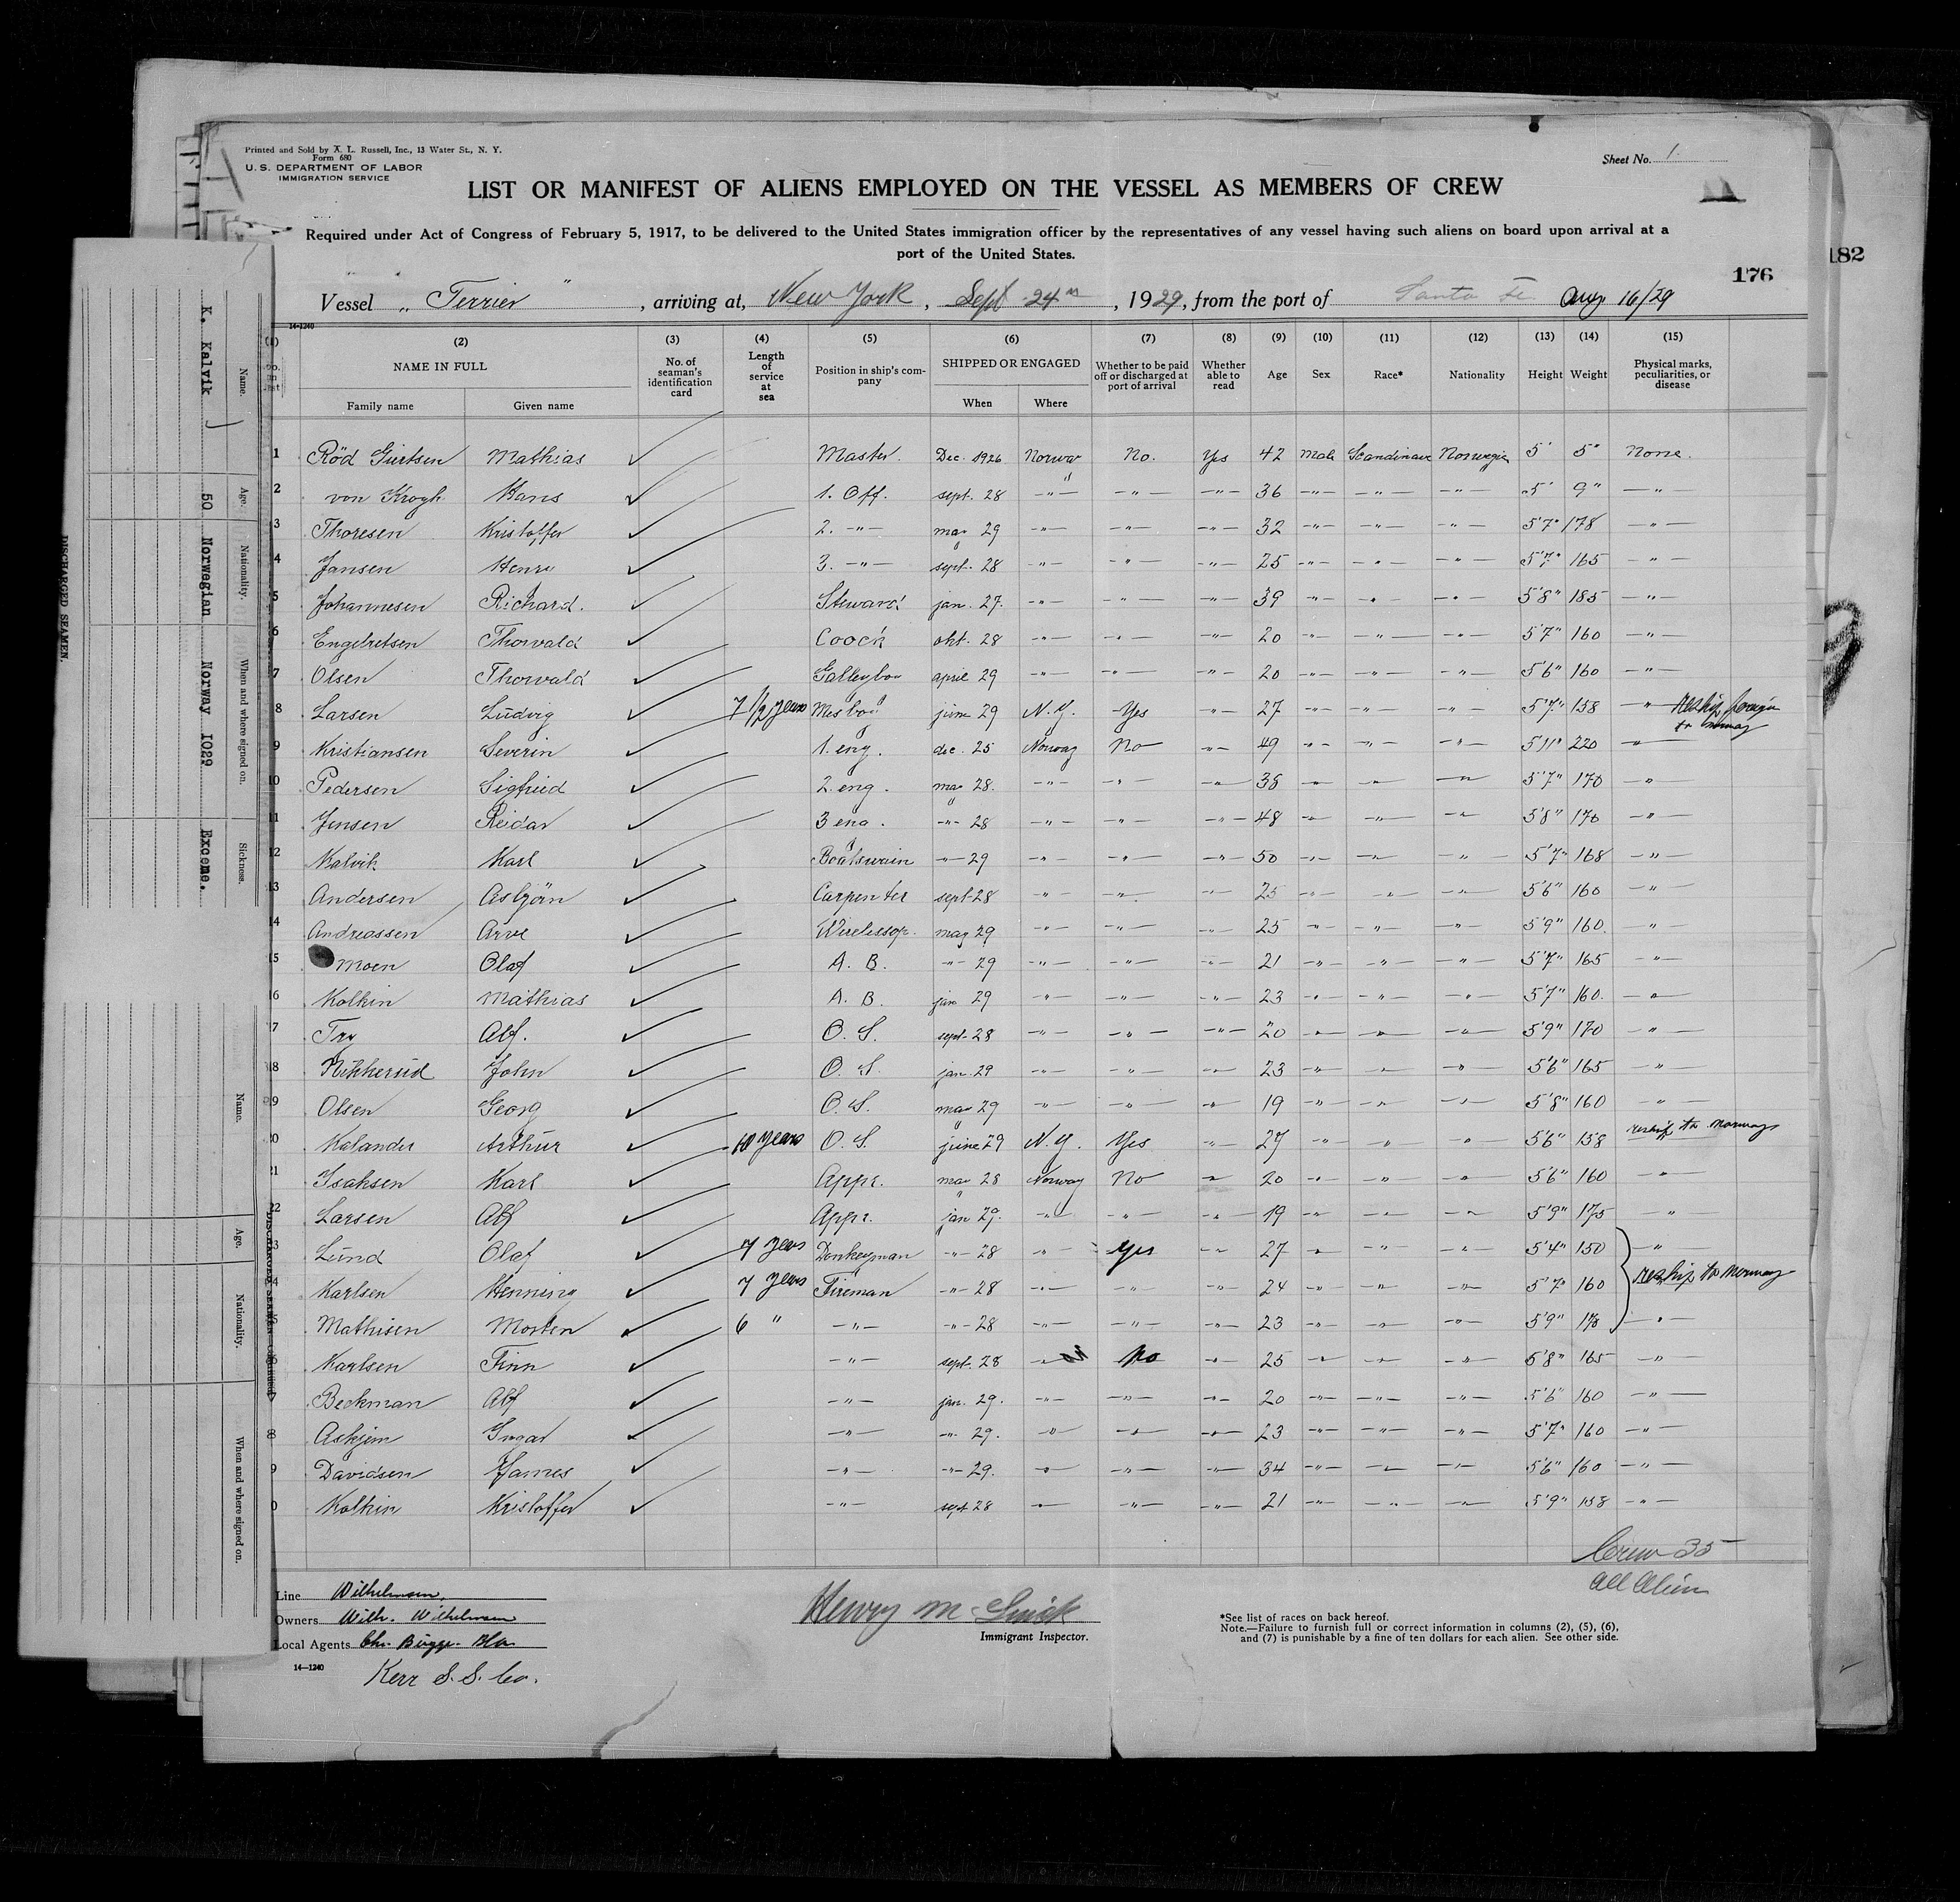 Printed and Sold by A. L. Russell, Inc., 13 Water St., N. Y.
Form 680
U. S. DEPARTMENT OF LABOR
IMMIGRATION SERVICE
Sheet No. 1.
LIST OR MANIFEST OF ALIENS EMPLOYED ON THE VESSEL AS MEMBERS OF CREW
Required under Act of Congress of February 5, 1917, to be delivered to the United States immigration officer by the representatives of any vessel having such aliens on board upon arrival at a
port of the United States.
182
176
Vessel „ Terrier " , arriving at, New York , Sept 24th , 1929, from the port of Santa Fe Aug 16/29
14-1240
(1) (2) (3) (4) (5) (6) (7) (8) (9) (10) (11) (12) (13) (14) (15)
NAME IN FULL
Family name Given name
No. of seaman's identification card
Length of service at sea
Position in ship's company
SHIPPED OR ENGAGED
When Where
Whether to be paid off or discharged at port of arrival
Whether able to read
Age Sex Race* Nationality Height Weight
Physical marks, peculiarities, or disease
1 Röd Giertsen Mathias ✓ Master. Dec. 1926 Norway No. Yes 42 Male Scandinave Norwegian 5' 5" None.
2 von Krogh Hans ✓ 1. Off. sept. 28 -"- -"- -"- 36 -"- -"- -"- 5' 9" -"-
3 Thoresen Kristoffer ✓ 2. -"- may 29 -"- -"- -"- 32 -"- -"- -"- 5'7" 178 -"-
4 Jansen Henry ✓ 3. -"- sept. 28 -"- -"- -"- 25 -"- -"- -"- 5'7" 165 -"-
5 Johannesen Richard. ✓ Steward jan. 27. -"- -"- -"- 39 -"- -"- -"- 5'8" 185 -"-
6 Engebretsen Thorvald ✓ Coock okt. 28 -"- -"- -"- 20 -"- -"- -"- 5'7" 160 -"-
7 Olsen Thorvald ✓ Galleyboy april 29 -"- -"- -"- 20 -"- -"- -"- 5'6" 160 -"-
8 Larsen Ludvig ✓ 7 1/2 years Mesboy june 29 N.Y. Yes -"- 27 -"- -"- -"- 5'7" 158 -"- reship foreign
to Norway
9 Kristiansen Severin ✓ 1. eng. dec. 25 Norway No -"- 49 -"- -"- -"- 5'11" 220 -"-
10 Pedersen Sigfried ✓ 2. eng. may 28. -"- -"- -"- 38 -"- -"- -"- 5'7" 170 -"-
11 Jensen Reidar ✓ 3 eng. -"- 28 -"- -"- -"- 48 -"- -"- -"- 5'8" 170 -"-
12 Kalvik Karl ✓ Boatswain -"- 29 -"- -"- -"- 50 -"- -"- -"- 5'7" 168 -"-
13 Andersen Asbjörn ✓ Carpenter sept-28 -"- -"- -"- 25 -"- -"- -"- 5'6" 160 -"-
14 Andreassen Arve ✓ Wirelessop. may 29 -"- -"- -"- 25 -"- -"- -"- 5'9" 160. -"-
15 Moen Olaf ✓ A. B. -"- 29 -"- -"- -"- 21 -"- -"- -"- 5'7" 165 -"-
6 Kolkin Mathias ✓ A. B. jan 29 -"- -"- -"- 23 -"- -"- -"- 5'7" 160. -"-
7 Try Alf. ✓ O. S. sept-28 -"- -"- -"- 20 -"- -"- -"- 5'9" 170 -"-
8 John ✓ O. S. jan-29 -"- -"- -"- 23 -"- -"- -"- 5'6" 165 -"-
9 Olsen Georg ✓ O. S. may 29 -"- -"- -"- 19 -"- -"- -"- 5'8" 160 -"-
0 Kalander Arthur ✓ 10 years O. S. june 29 N.Y. Yes -"- 27 -"- -"- -"- 5'6" 158 reship to Norway
1 Isaksen Karl ✓ Appr. may 28 Norway No -"- 20 -"- -"- -"- 5'6" 160 -"-
22 Larsen Alf ✓ Appr. jan 29. -"- -"- -"- 19 -"- -"- -"- 5'9" 175 -"-
3 Lund Olaf ✓ 7 years Donkeyman -"- 28 -"- Yes -"- 27 -"- -"- -"- 5'4" 150 -"-
4 Karlsen Henning ✓ 7 years Fireman -"- 28 -"- -"- -"- 24 -"- -"- -"- 5'7" 160 reship to Norway
5 Mathisen Morten ✓ 6 " -"- -"- 28 -"- -"- -"- 23 -"- -"- -"- 5'9" 170 -"-
6 Karlsen Finn ✓ -"- sept. 28 -"- No -"- 25 -"- -"- -"- 5'8" 165 -"-
7 Beckman Alf ✓ -"- jan. 29. -"- -"- -"- 20 -"- -"- -"- 5'6" 160 -"-
8 Askjem Ingar ✓ -"- -"- 29. -"- -"- -"- 23 -"- -"- -"- 5'7" 160 -"-
9 Davidsen James ✓ -"- -"- 29. -"- -"- -"- 34 -"- -"- -"- 5'6" 160 -"-
0 Kolkin Kristoffer ✓ -"- sept 28 -"- -"- -"- 21 -"- -"- -"- 5'9" 158 -"-
Crew 35
all Alien
Line Wilhelmsen.
Owners Wilh. Wilhelmsen
Local Agents Chr. Bugge.
14-1240
Kerr S. S. Co.
Henry M
Immigrant Inspector.
*See list of races on back hereof.
Note.—Failure to furnish full or correct information in columns (2), (5), (6),
and (7) is punishable by a fine of ten dollars for each alien. See other side.
DISCHARGED SEAMEN.
Name. Age. Nationality. When and where signed on. Sickness.
K. Kalvik 50 Norwegian Norway 1029 Exceme.
DISCHARGED SEAMEN
Name. Age. Nationality. When and where signed on.